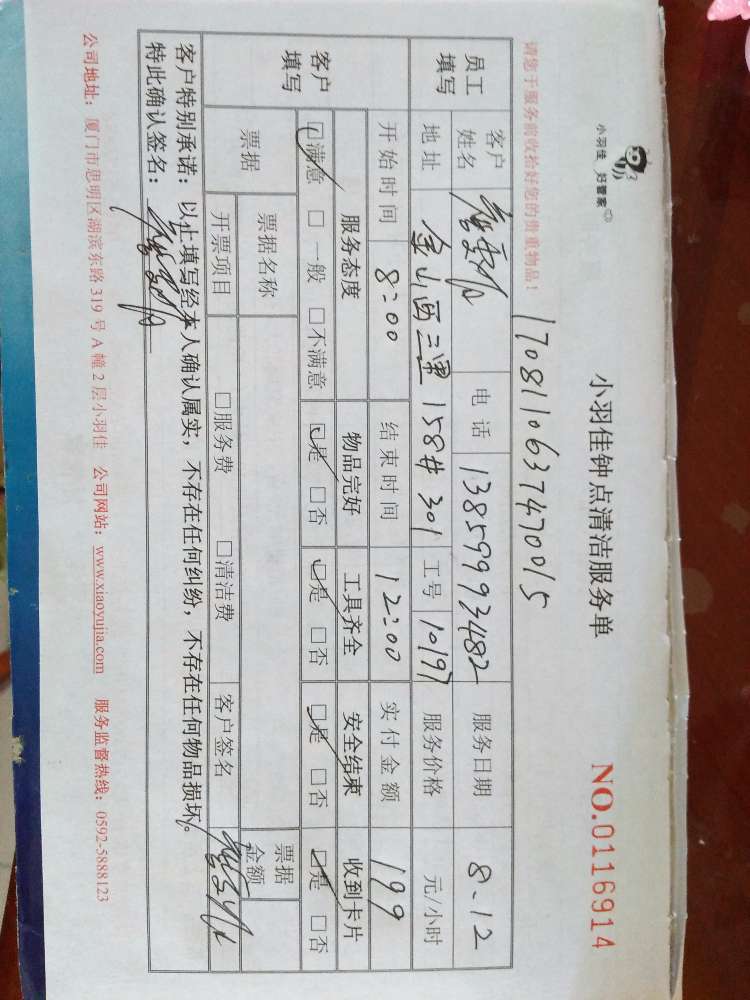 小羽佳 好管家
小羽佳钟点清洁服务单
NO.0116914
请您于服务前收拾好您的贵重物品！
1708110637470015
员工填写
客户姓名 电话 13859993482 服务日期 8.12
地址 金山西二里 158# 301 工号 10197 服务价格 元/小时
开始时间 8:00 结束时间 12:00 实付金额 199
客户填写
服务态度 物品完好 工具齐全 安全结束 收到卡片
☑满意 □一般 □不满意 ☑是 □否 ☑是 □否 ☑是 □否 ☑是 □否
票据 票据名称 票据金额
开票项目 □服务费 □清洁费 客户签名
客户特别承诺：以上填写经本人确认属实，不存在任何纠纷，不存在任何物品损坏。
特此确认签名：
公司地址：厦门市思明区湖滨东路319号A幢2层小羽佳 公司网站：www.xiaoyujia.com 服务监督热线：0592-5888123